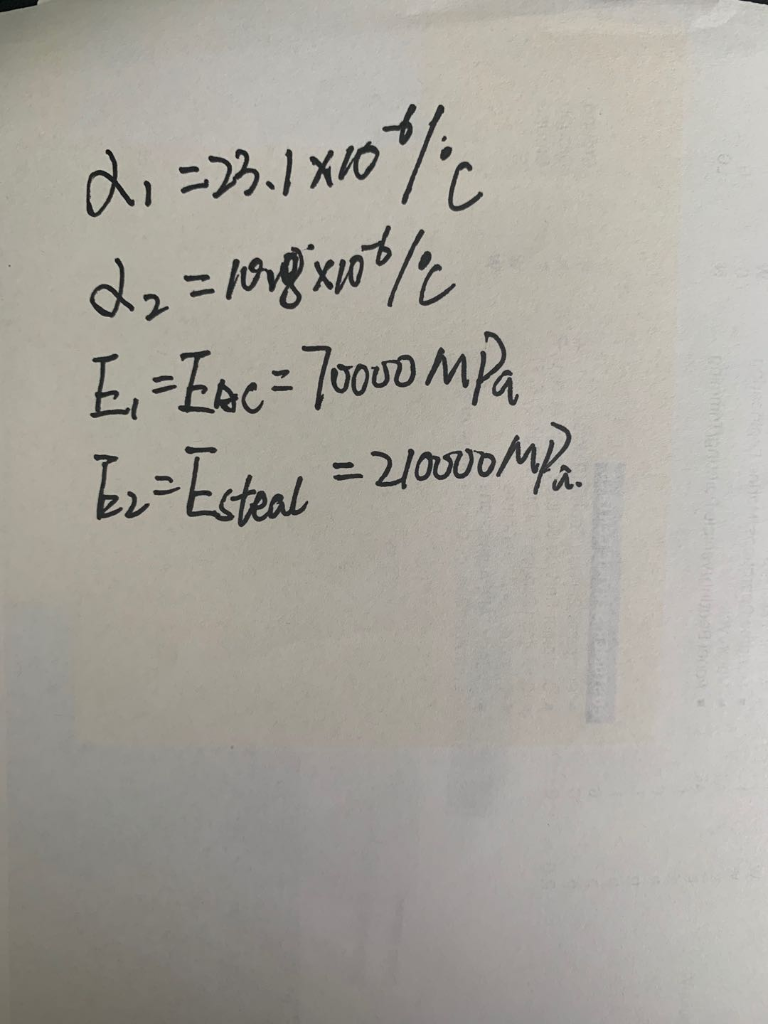 α₁ = 23.1 × 10⁻⁶/°C
α₂ = × 10⁻⁶/°C
E₁ = EAC = 70000 MPa
E₂ = Esteal = 210000 MPa.